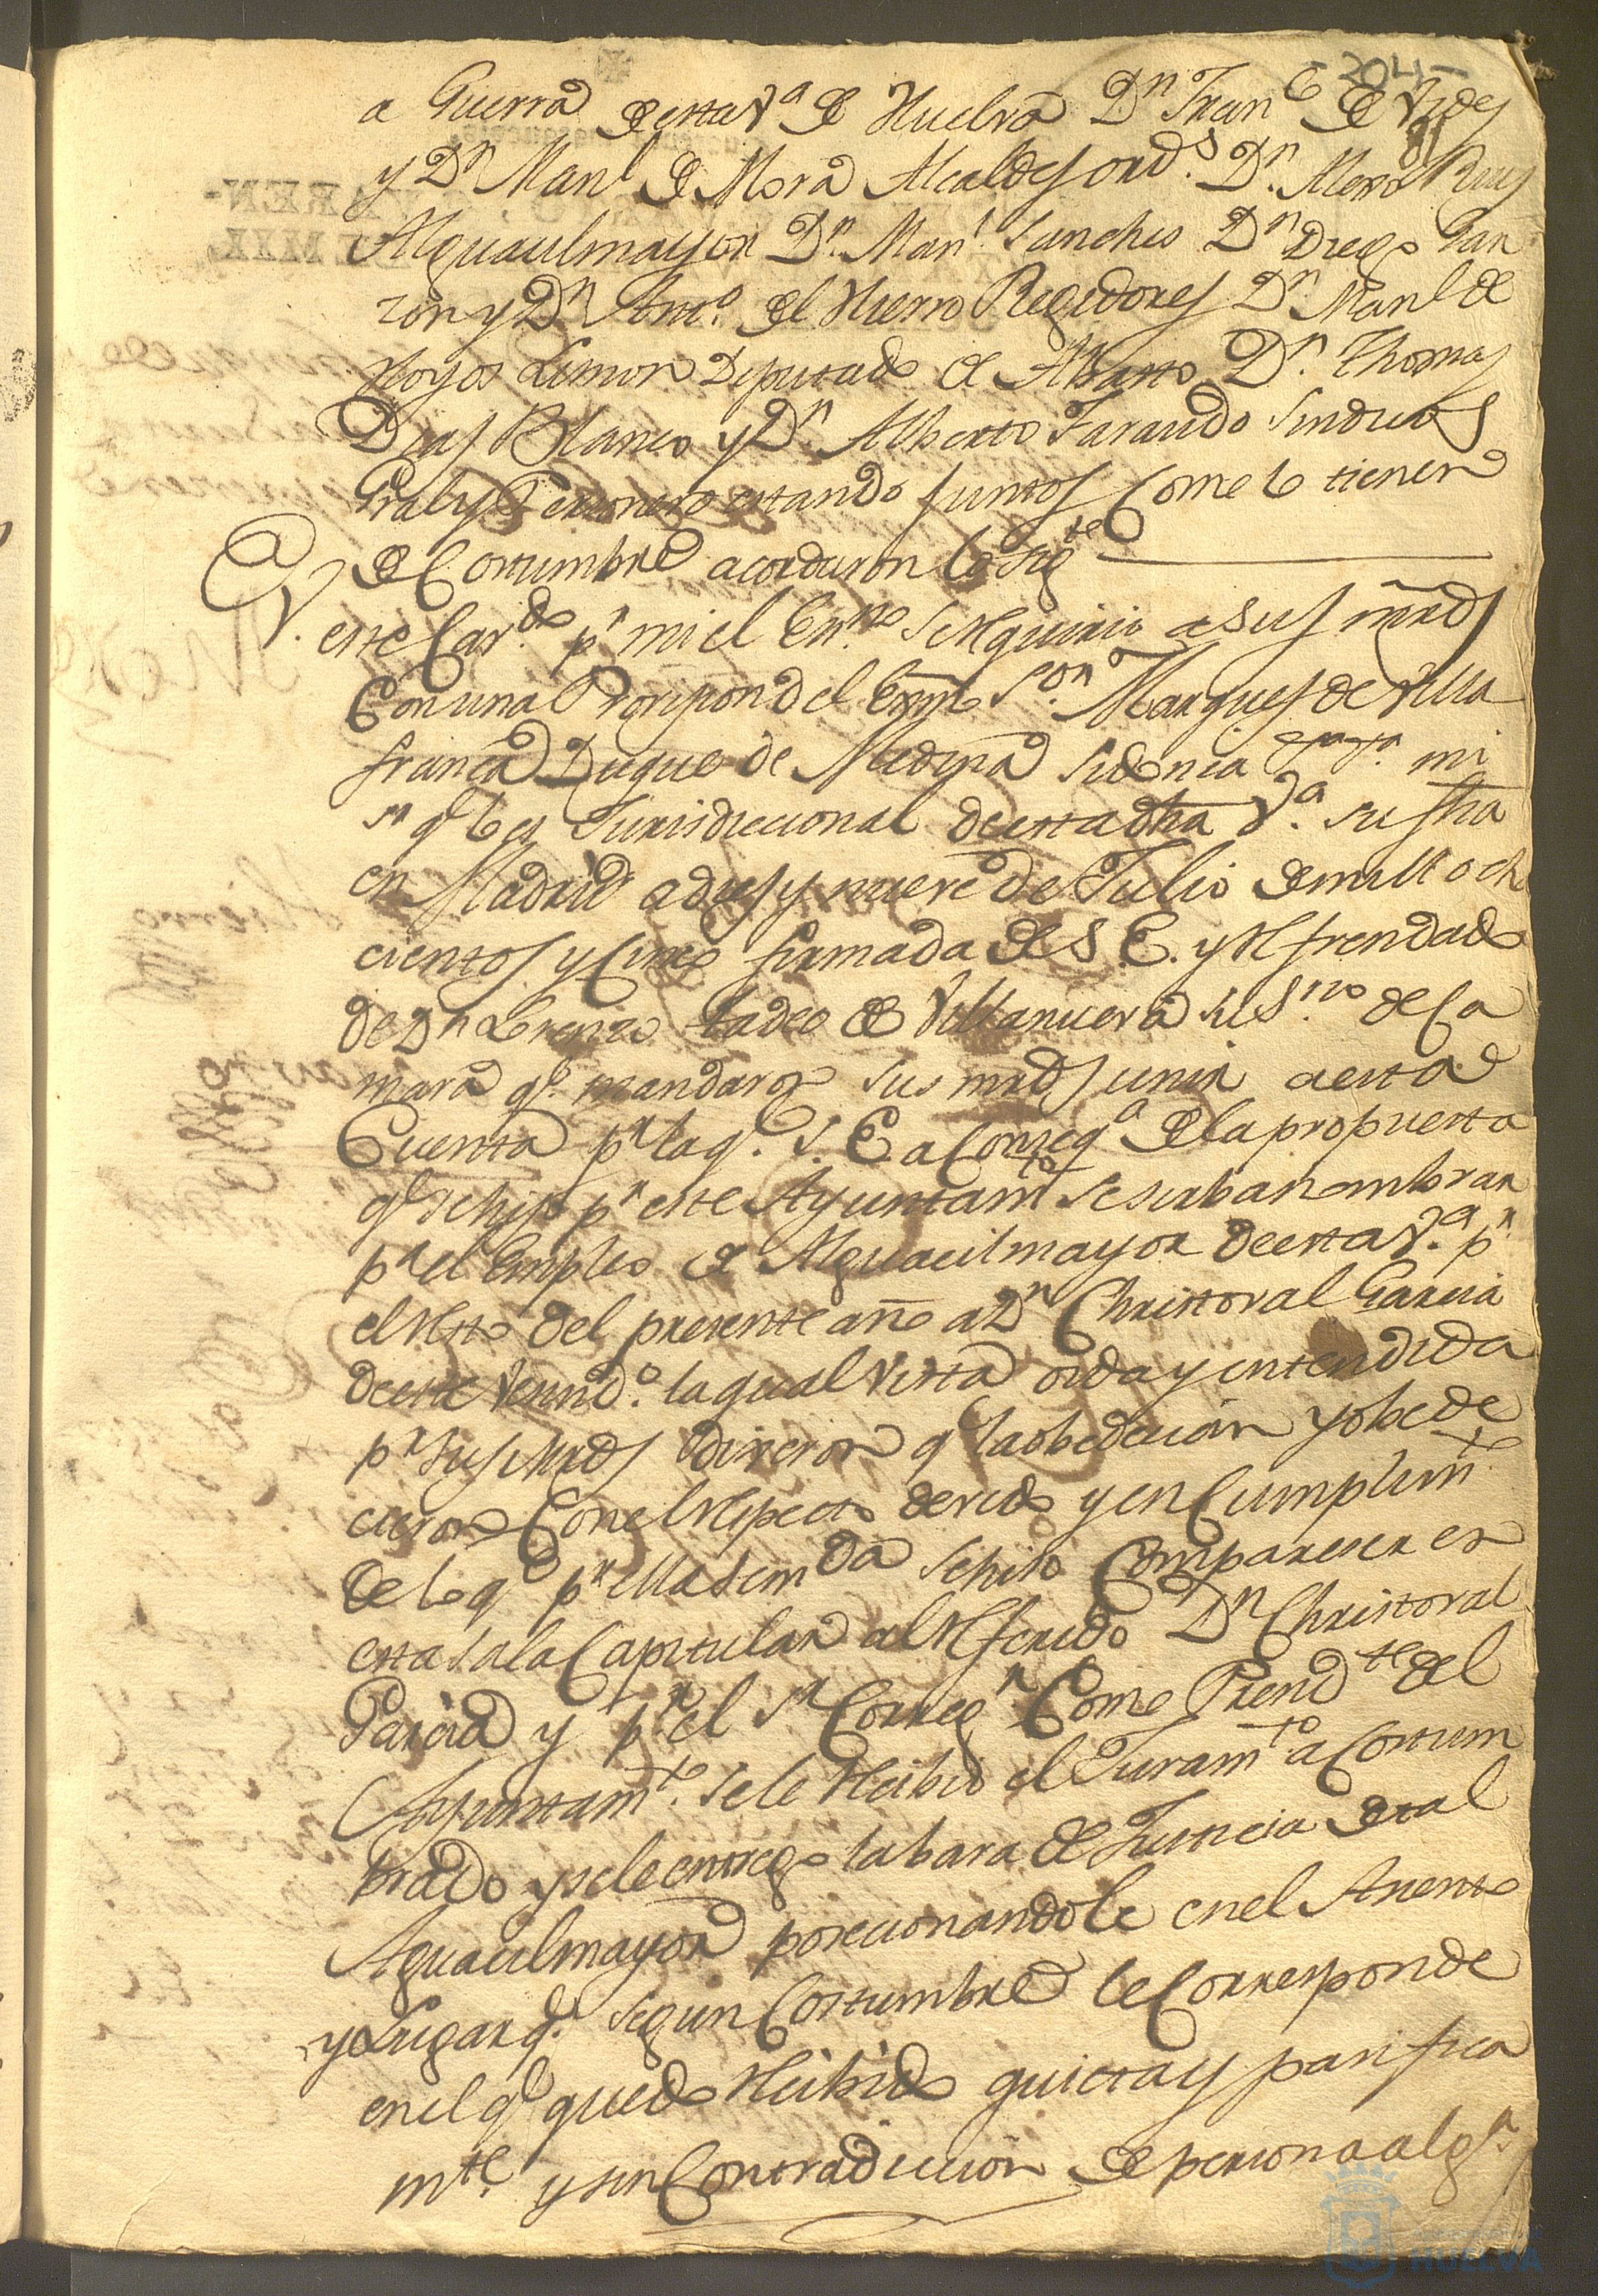 -204-
a Guerra de esta V.ª de Huelva Dn Franco de Vides
y Dn Manl de Mora Alcaldes ords. Dn. Ruis
Alguacilmayor Dn. Manl. Sanches Dn Diego Gar
zon y Dn Anto. del Hierro Regidores Dn. Manl de
Hoyos Limon Diputado de Abasto Dn. Thomas
Dias Blanco y Dn. Alberto Farando Sindicos
Gral y Personero estando juntos Como lo tienen
de Costumbre acordaron lo sigte
En
este Cavdo. pr mi el Enno. se requirio a sus mrds
Con una Provision del Exmo Sor. Marques de Villa
franca Duque de Medina Sidonia mi
sr qe lo es Jurisdiccional de esta dha Va. su fha
en Madrid a dies y nueve de Julio de mill ocho
cientos y Cinco firmada de S. E. y refrendada
de Dn Lorenzo tadeo de Villanueva su Srio de Ca
mara qe. mandaron sus mrds unir a esta
Cuenta pr la q. S. E. a Conseqa de la propuesta
qe se hiso pr este Ayuntamto se sirba nombrar
pa el Empleo de Alguacilmayor de esta V.a pr
el resto del presente año a Dn Christoval Garcia
de este Vecindo. la qual vista oida y entendida
pr sus Mrds dixeron qe la obedecian y obede
cieron Con el respecto devido y en Cumplimto
de lo qe pr ella se mda se hiso Comparecer en
esta sala Capitular al referido Dn Christoval
Garcia y pr el Sr Corregr Como Presidte del
Ayuntamto. se le recibio el Juramto a Costum
brado y se le entrego la bara de Justicia de tal
Alguacilmayor posecionandole en el Asiento
y Lugar qe. segun Costumbre le Corresponde
en el qe quedo recibido quieta y pasifica
mte. y sin Contradiccion de persona alga.
HUELVA